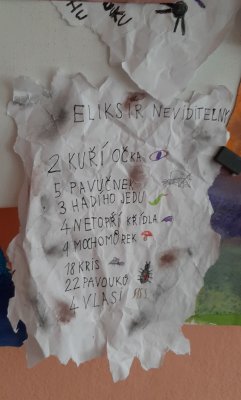 ELIKSÍR NEVIDITELNÝ
2 KUŘÍ OČKA
5 PAVUČNEK
3 HADÍHO JEDU
4 NETOPŘÍ KŘÍDLA
9 MOCHOMŮREK
18 KRIS
22 PAVOUKŮ
4 VLASI